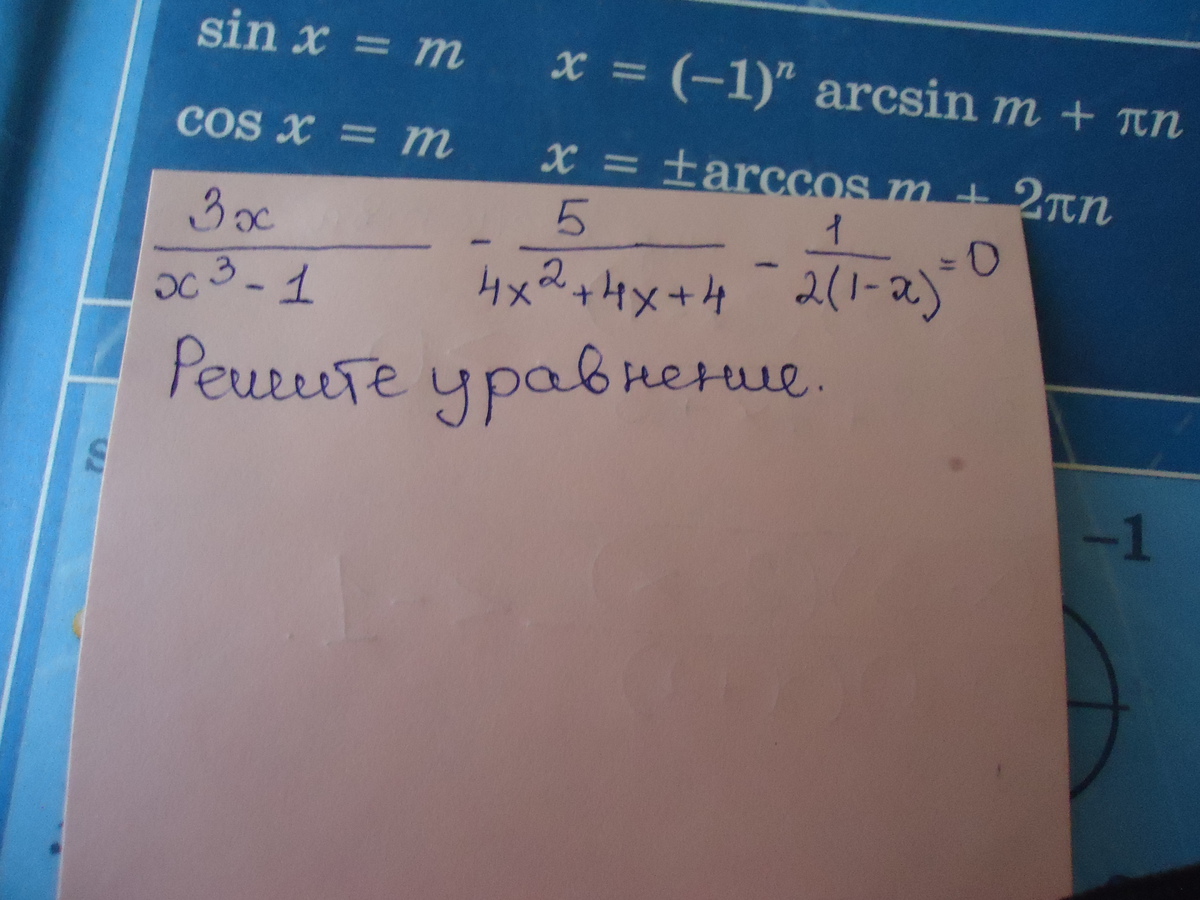 sin x = m x = (−1)ⁿ arcsin m + πn
cos x = m x = ±arccos m + 2πn
3x/(x³ - 1) - 5/(4x² + 4x + 4) - 1/(2(1 - x)) = 0
Решите уравнение.
−1